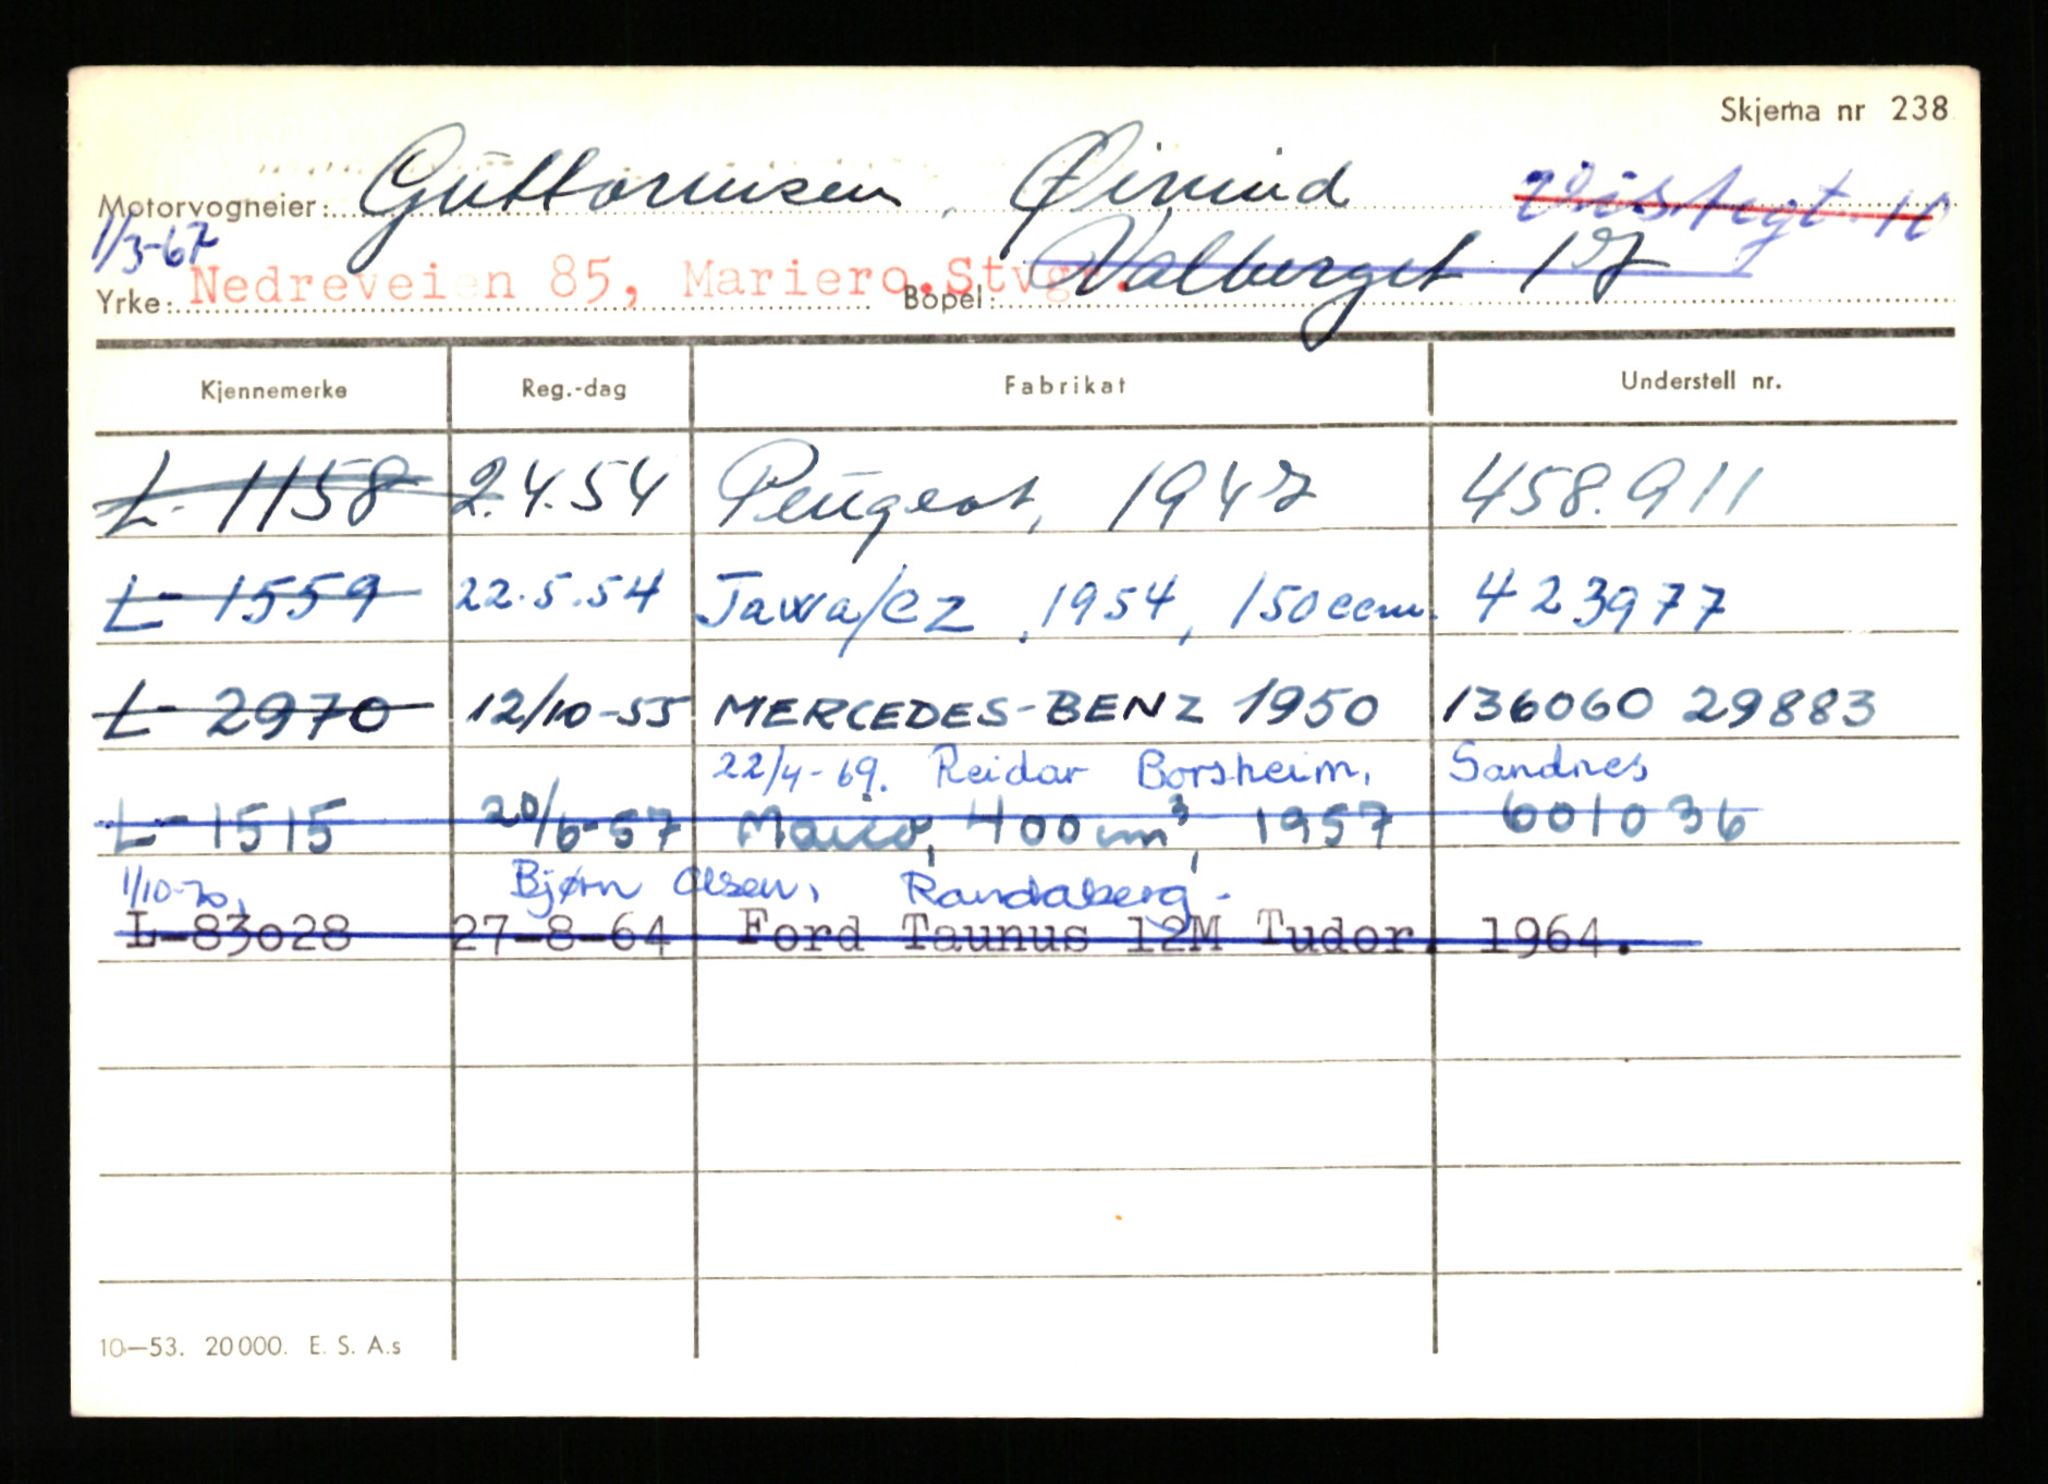 Skjema nr 238
Motorvogneier: Guttormsen, Øivind
1/3-67 Valberget 17
Yrke: Nedreveien 85, Mariero. Stvgr. Bopel:
Kjennemerke Reg.-dag Fabrikat Understell nr.
L- 1158 2.4.54 Peugeot, 1947 458.911
L- 1559 22.5.54 Jawa/CZ, 1954, 150 ccm. 423977
L- 2970 12/10-55 MERCEDES-BENZ 1950 136060 29883
22/4-69. Reidar Borsheim, Sandnes
L- 1515 20/6-57 Maico, 400 cm³, 1957 601036
1/10-70, Bjørn Olsen, Randaberg-
L-83o28 27-8-64 Ford Taunus 12M Tudor. 1964.
10-53. 20 000. E. S. A.s